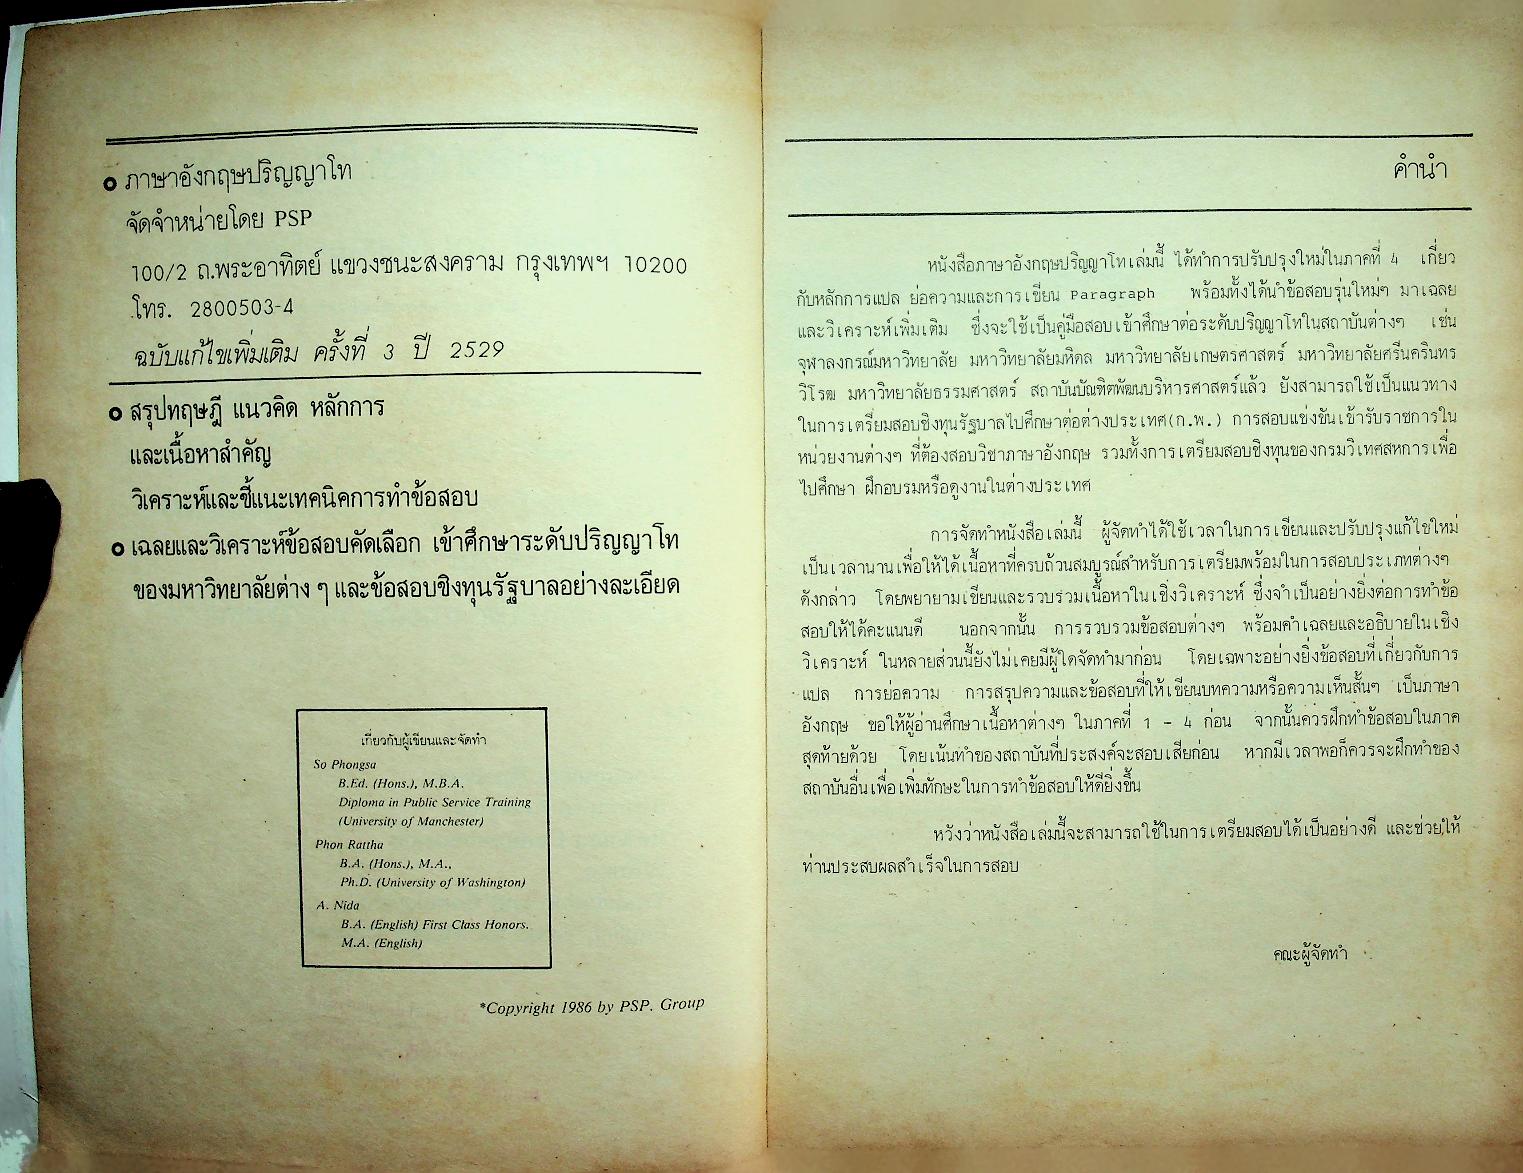 ภาษาอังกฤษปริญญาโท
จัดจำหน่ายโดย PSP
100/2 ถ.พระอาทิตย์ แขวงชนะสงคราม กรุงเทพฯ 10200
โทร. 2800503-4
ฉบับแก้ไขเพิ่มเติม ครั้งที่ 3 ปี 2529
สรุปทฤษฎี แนวคิด หลักการ
และเนื้อหาสำคัญ
วิเคราะห์และชี้แนะเทคนิคการทำข้อสอบ
เฉลยและวิเคราะห์ข้อสอบคัดเลือก เข้าศึกษาระดับปริญญาโท
ของมหาวิทยาลัยต่าง ๆ และข้อสอบชิงทุนรัฐบาลอย่างละเอียด
เกี่ยวกับผู้เขียนและจัดทำ
So Phongsa
B.Ed. (Hons.), M.B.A.
Diploma in Public Service Training
(University of Manchester)
Phon Rattha
B.A. (Hons.), M.A.,
Ph.D. (University of Washington)
A. Nida
B.A. (English) First Class Honors.
M.A. (English)
*Copyright 1986 by PSP. Group
คำนำ
หนังสือภาษาอังกฤษปริญญาโทเล่มนี้ ได้ทำการปรับปรุงใหม่ในภาคที่ 4 เกี่ยว
กับหลักการแปล ย่อความและการเขียน Paragraph พร้อมทั้งได้นำข้อสอบรุ่นใหม่ๆ มาเฉลย
และวิเคราะห์เพิ่มเติม ซึ่งจะใช้เป็นคู่มือสอบเข้าศึกษาต่อระดับปริญญาโทในสถาบันต่างๆ เช่น
จุฬาลงกรณ์มหาวิทยาลัย มหาวิทยาลัยมหิดล มหาวิทยาลัยเกษตรศาสตร์ มหาวิทยาลัยศรีนครินทร
วิโรฒ มหาวิทยาลัยธรรมศาสตร์ สถาบันบัณฑิตพัฒนบริหารศาสตร์แล้ว ยังสามารถใช้เป็นแนวทาง
ในการเตรียมสอบชิงทุนรัฐบาลไปศึกษาต่อต่างประเทศ(ก.พ.) การสอบแข่งขันเข้ารับราชการใน
หน่วยงานต่างๆ ที่ต้องสอบวิชาภาษาอังกฤษ รวมทั้งการเตรียมสอบชิงทุนของกรมวิเทศสหการเพื่อ
ไปศึกษา ฝึกอบรมหรือดูงานในต่างประเทศ
การจัดทำหนังสือเล่มนี้ ผู้จัดทำได้ใช้เวลาในการเขียนและปรับปรุงแก้ไขใหม่
เป็นเวลานานเพื่อให้ได้เนื้อหาที่ครบถ้วนสมบูรณ์สำหรับการเตรียมพร้อมในการสอบประเภทต่างๆ
ดังกล่าว โดยพยายามเขียนและรวบร่วมเนื้อหาในเชิงวิเคราะห์ ซึ่งจำเป็นอย่างยิ่งต่อการทำข้อ
สอบให้ได้คะแนนดี นอกจากนั้น การรวบรวมข้อสอบต่างๆ พร้อมคำเฉลยและอธิบายในเชิง
วิเคราะห์ ในหลายส่วนนี้ยังไม่เคยมีผู้ใดจัดทำมาก่อน โดยเฉพาะอย่างยิ่งข้อสอบที่เกี่ยวกับการ
แปล การย่อความ การสรุปความและข้อสอบที่ให้เขียนบทความหรือความเห็นสั้นๆ เป็นภาษา
อังกฤษ ขอให้ผู้อ่านศึกษาเนื้อหาต่างๆ ในภาคที่ 1 - 4 ก่อน จากนั้นควรฝึกทำข้อสอบในภาค
สุดท้ายด้วย โดยเน้นทำของสถาบันที่ประสงค์จะสอบเสียก่อน หากมีเวลาพอก็ควรจะฝึกทำของ
สถาบันอื่นเพื่อเพิ่มทักษะในการทำข้อสอบให้ดียิ่งขึ้น
หวังว่าหนังสือเล่มนี้จะสามารถใช้ในการเตรียมสอบได้เป็นอย่างดี และช่วยให้
ท่านประสบผลสำเร็จในการสอบ
คณะผู้จัดทำ